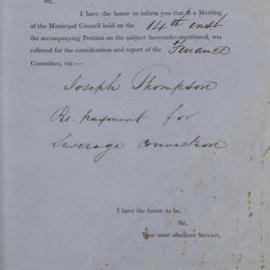 Sir,
I have the honor to inform you that at a Meeting
of the Municipal Council held on the 14th inst
the accompanying Petition on the subject hereunder-mentioned, was
referred for the consideration and report of the Finance
Committee, viz:—
Joseph Thompson
Re-payment for
Sewerage connection
I have the honor to be,
Sir,
Your most obedient Servant,